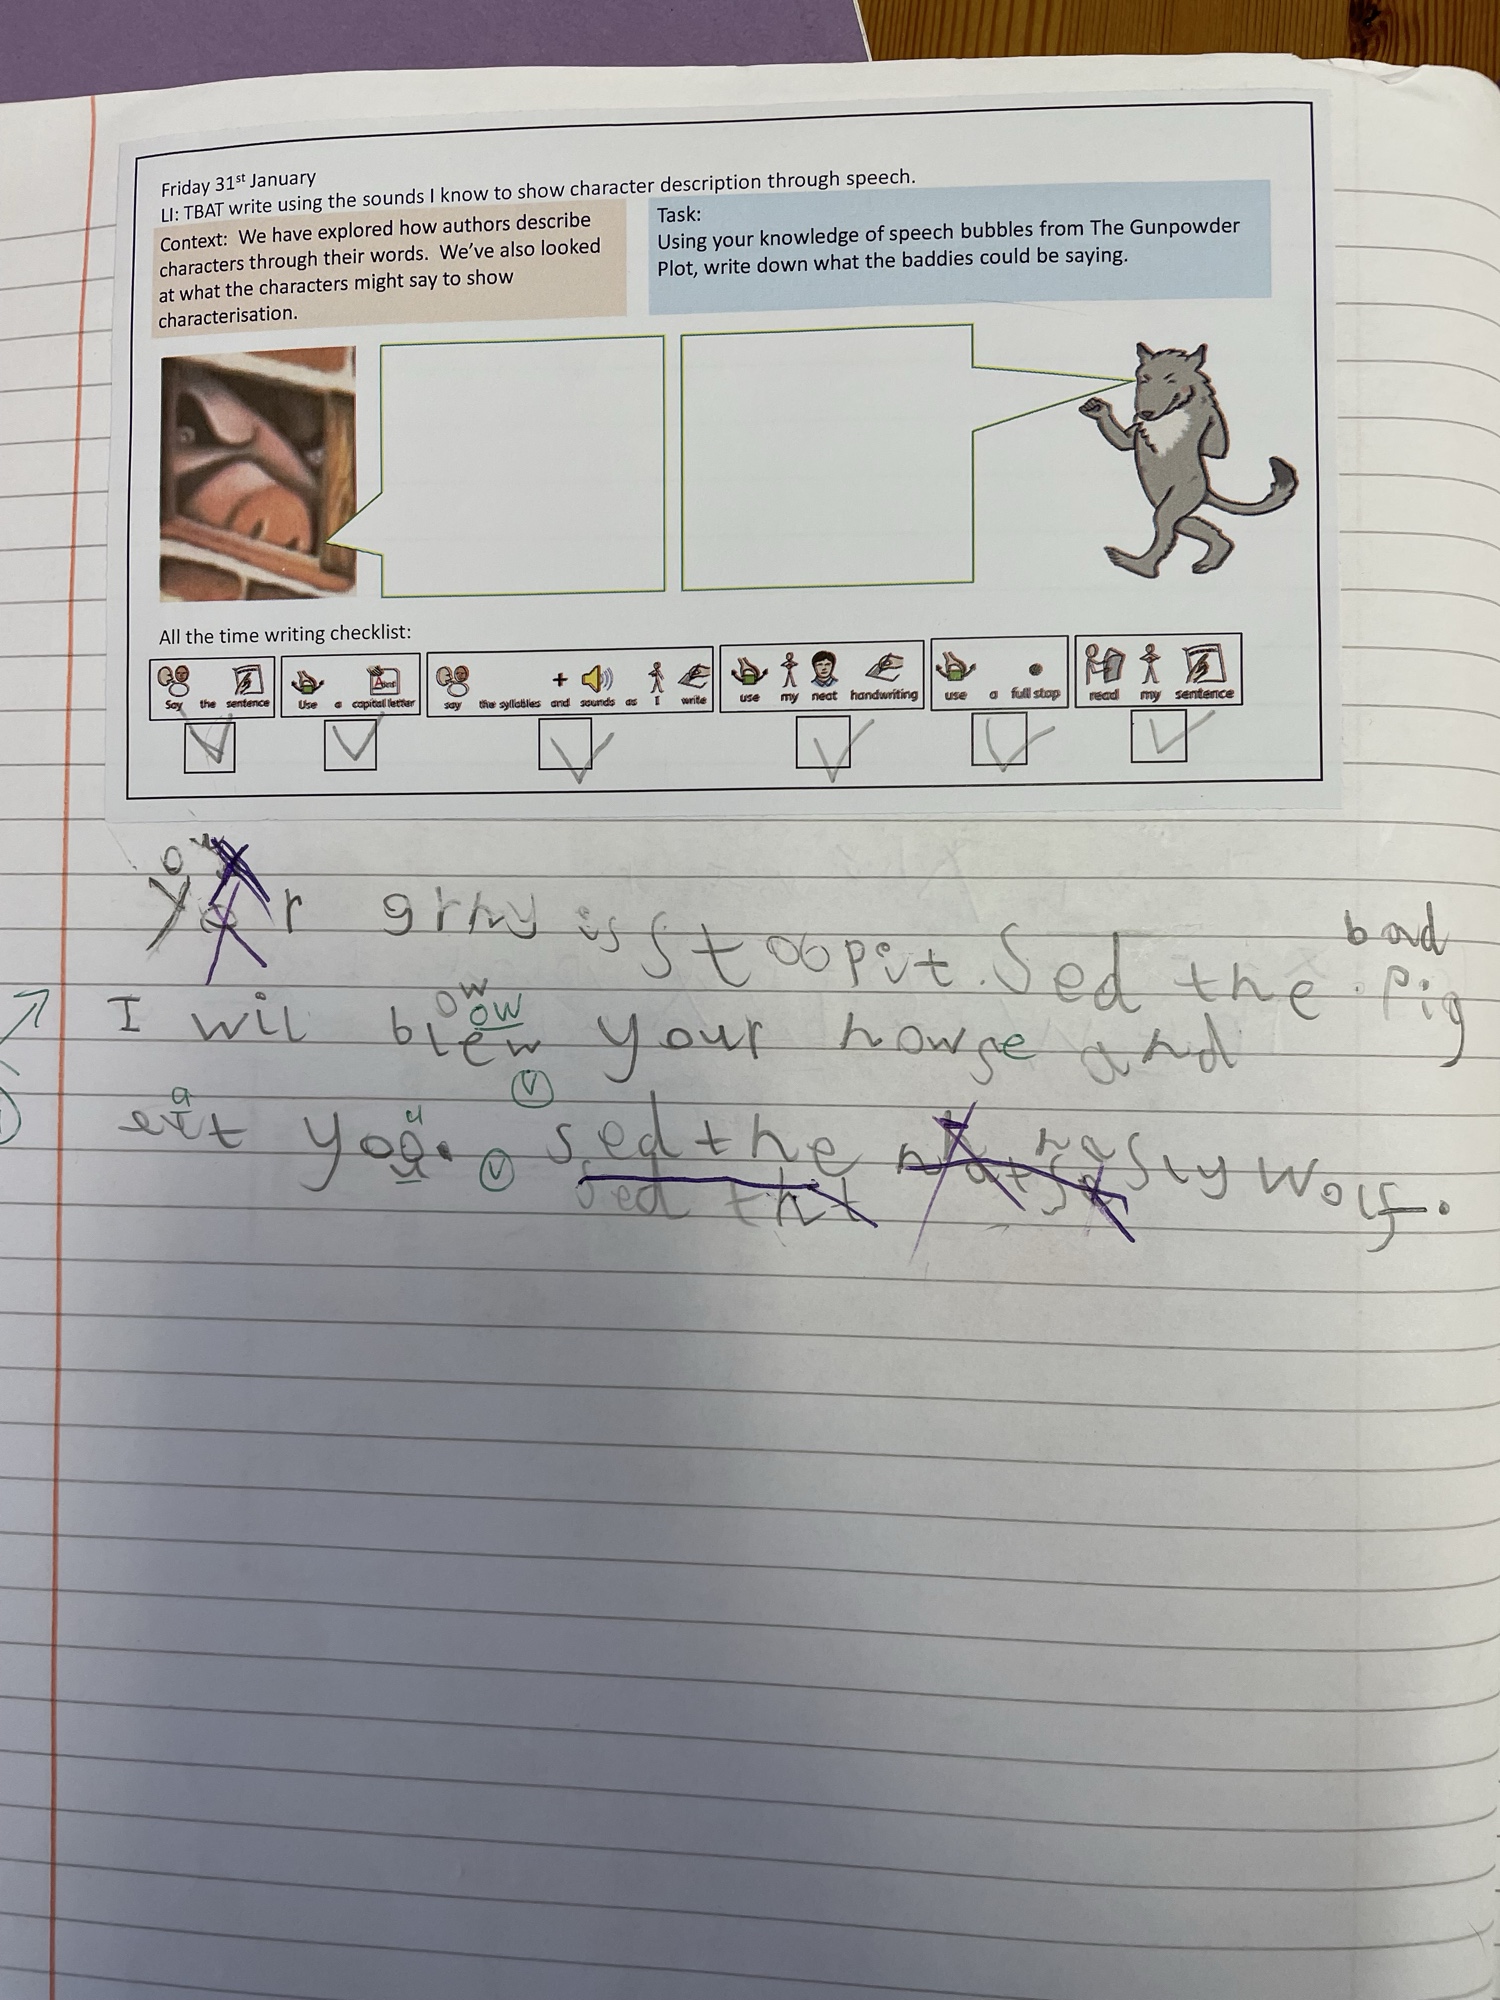 Friday 31st January
LI: TBAT write using the sounds I know to show character description through speech.
Context: We have explored how authors describe
characters through their words. We've also looked
at what the characters might say to show
characterisation.
Task:
Using your knowledge of speech bubbles from The Gunpowder
Plot, write down what the baddies could be saying.
All the time writing checklist:
Say the sentence
Use a capital letter
say the syllables and sounds as I write
use my neat handwriting
use a full stop
read my sentence
bad
r grny is stoopit. Sed the pig
ow
ow
I wil blew your howse and
a
u
eit yoo. sed the nasty wolf.
sed tht